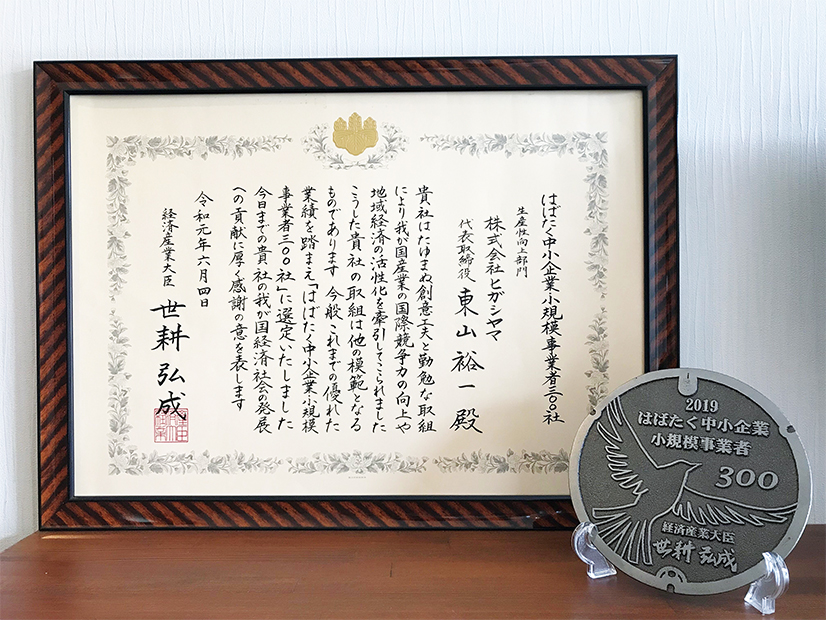 はばたく中小企業小規模事業者三〇〇社
生産性向上部門
株式会社ヒガシヤマ
代表取締役 東山裕一殿
貴社はたゆまぬ創意工夫と勤勉な取組
により我が国産業の国際競争力の向上や
地域経済の活性化を牽引してこられました
こうした貴社の取組は他の模範となる
ものであります 今般これまでの優れた
業績を踏まえ「はばたく中小企業小規模
事業者三〇〇社」に選定いたしました
今日までの貴社の我が国経済社会の発展
への貢献に厚く感謝の意を表します
令和元年六月四日
経済産業大臣 世耕弘成
2019
はばたく中小企業
小規模事業者
300
経済産業大臣
世耕弘成